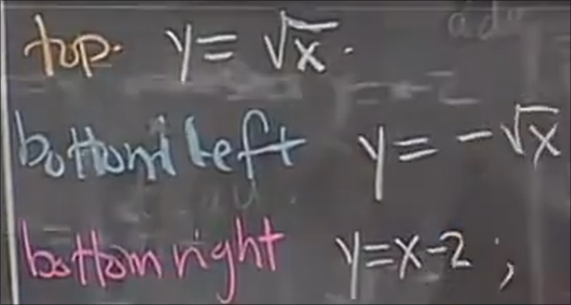 top. y = √x.
bottom left y = -√x
bottom right y=x-2;